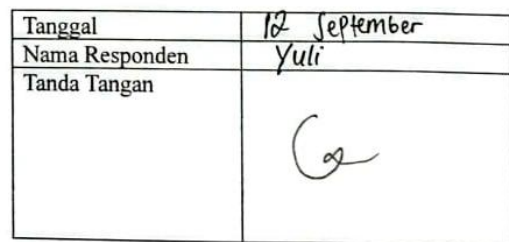 Tanggal 12 September
Nama Responden Yuli
Tanda Tangan